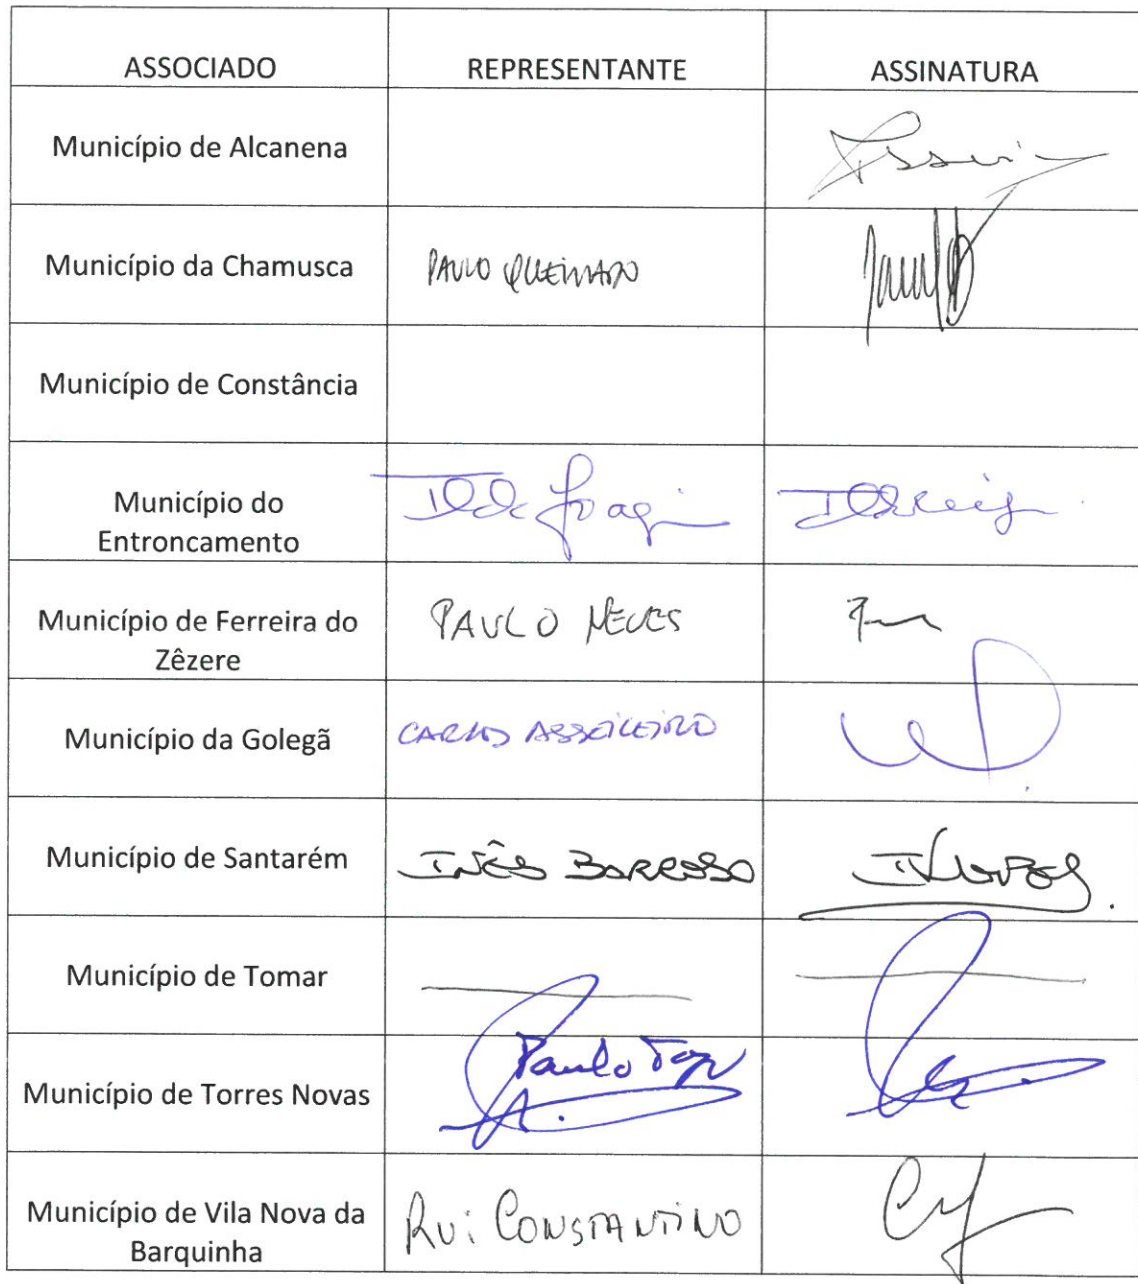 ASSOCIADO REPRESENTANTE ASSINATURA
Município de Alcanena
Município da Chamusca PAULO QUEIMADO
Município de Constância
Município do
Entroncamento
Município de Ferreira do
Zêzere
PAULO NEVES
Município da Golegã CARLOS ASSEICEIRO
Município de Santarém INÊS BARROSO
Município de Tomar
Município de Torres Novas Paulo
Município de Vila Nova da
Barquinha
RUi CONSTANTiNO